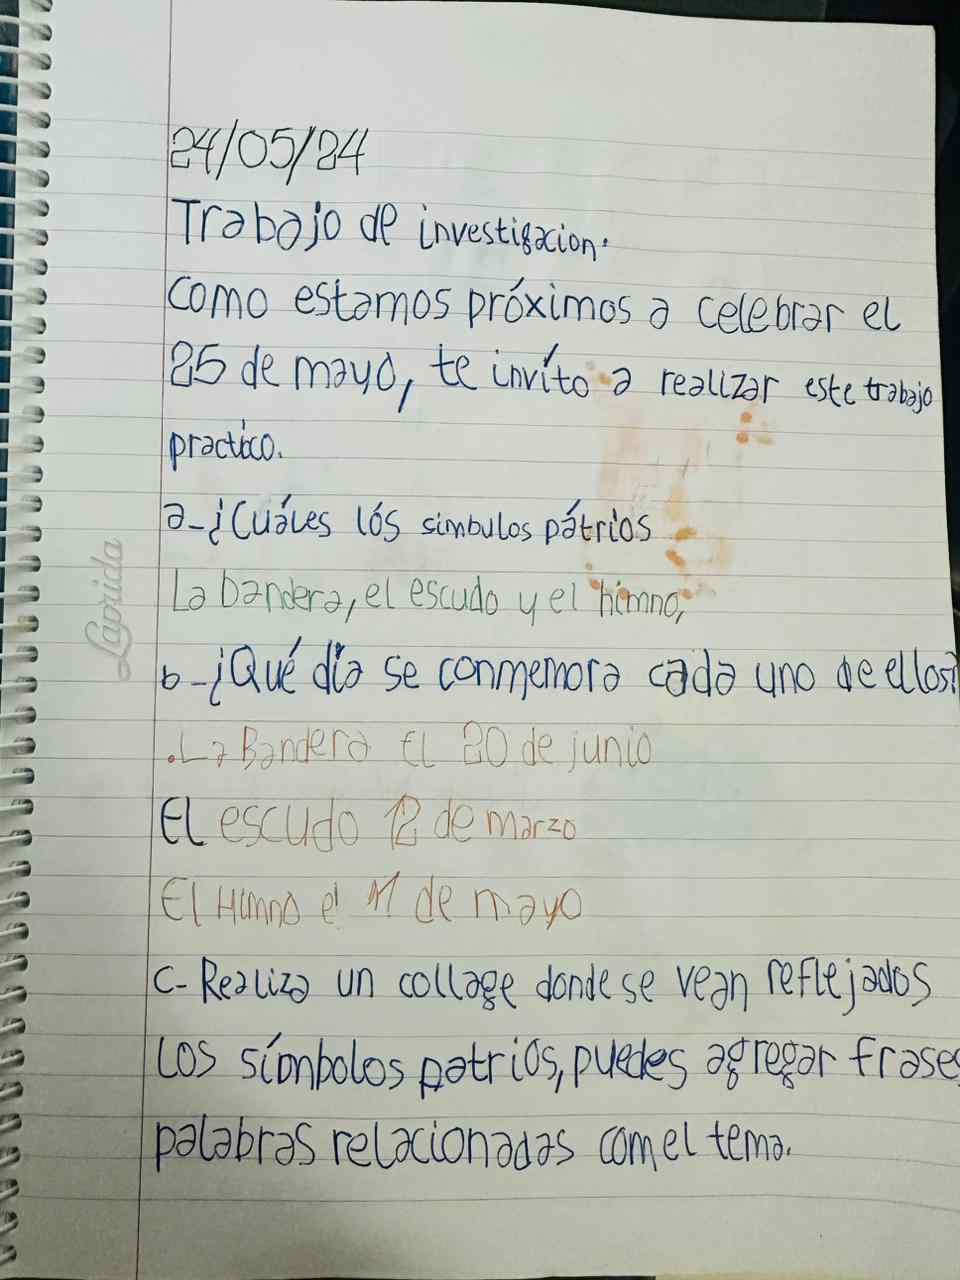 24/05/24
Trabajo de investigacion.
Como estamos próximos a celebrar el
25 de mayo, te invíto a realizar este trabajo
practico.
a-¿Cuáles lós simbulos pátrios
La bandera, el escudo y el himno,
Laprida
b-¿Qué día se conmemora cada uno de ellos?
.La Bandera El 20 de junio
El escudo 12 de marzo
El Himno el 11 de mayo
c- Realiza un collage donde se vean reflejados
los símbolos patrios, puedes agregar frases
palabras relacionadas com el tema.